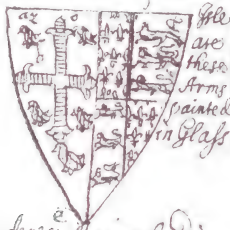 az o
Isle
are
these
Arms
painted
in Glass
o
e